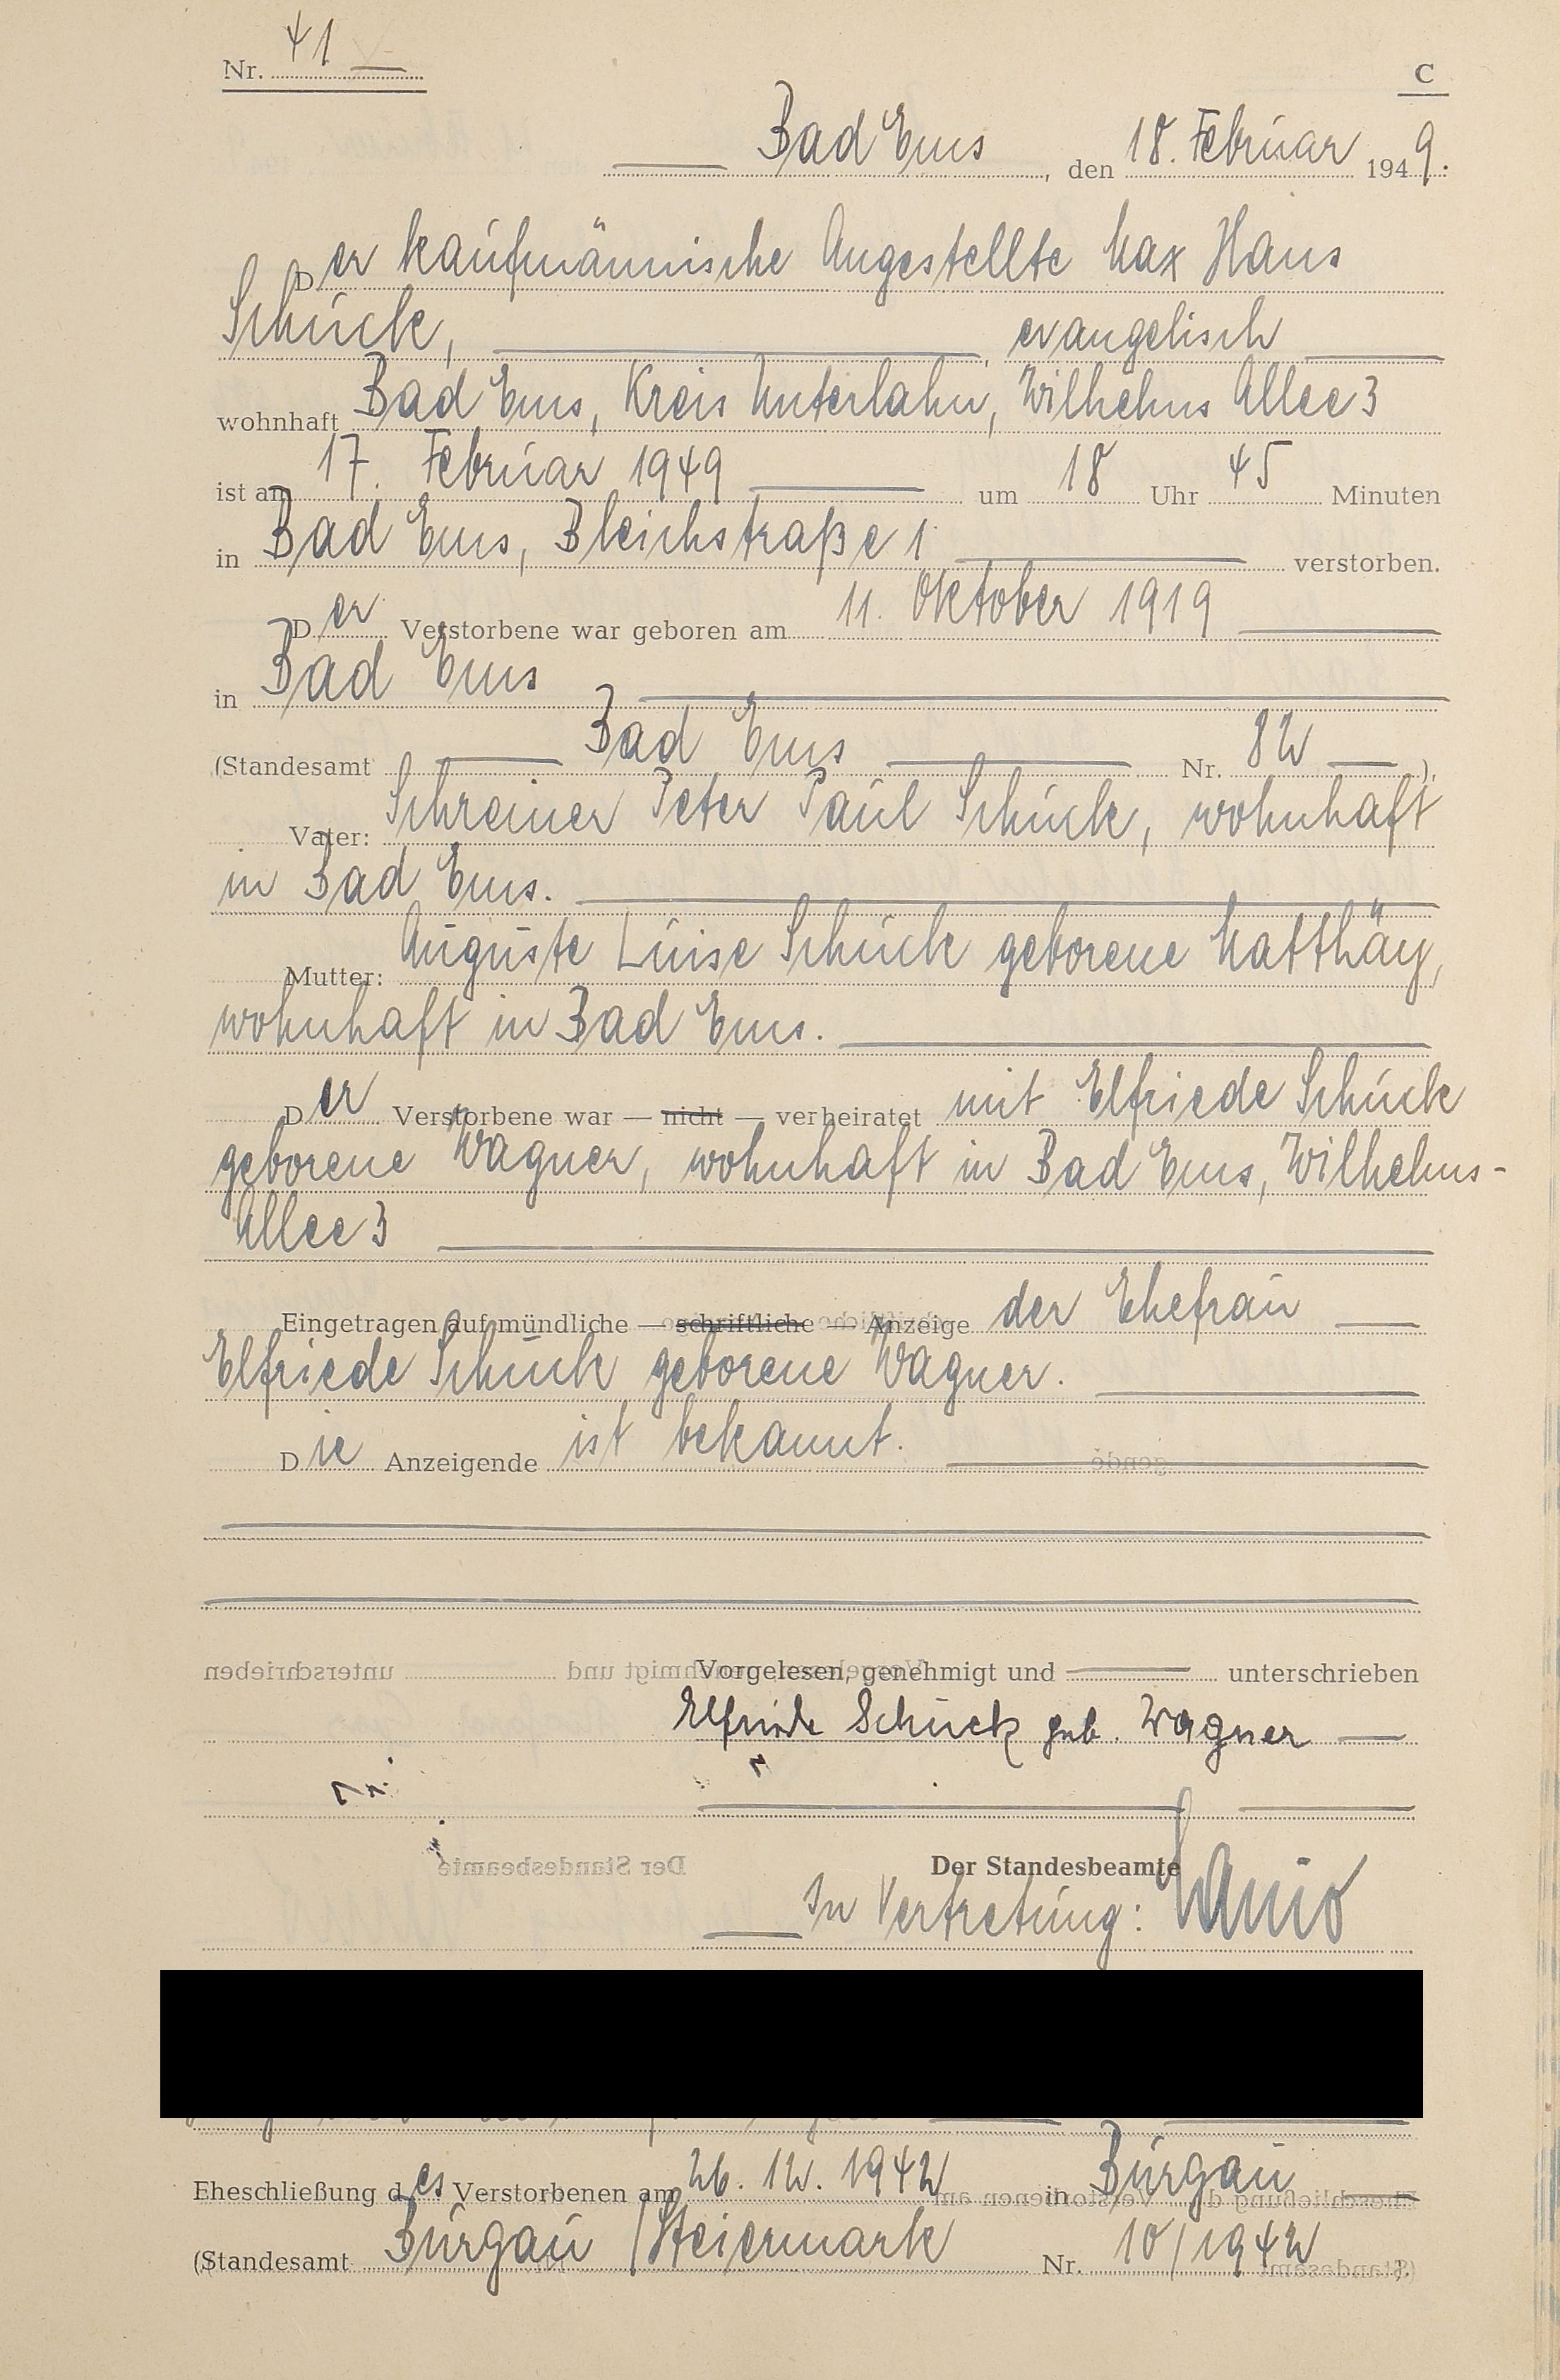 Nr. 41
C
Bad Ems, den 18. Februar 1949.
Der kaufmännische Angestellte Max Hans
Schück, evangelisch
wohnhaft Bad Ems, Kreis Unterlahn, Wilhelms Allee 3
ist am 17. Februar 1949 um 18 Uhr 45 Minuten
in Bad Ems, Bleichstraße 1 verstorben.
Der Verstorbene war geboren am 11. Oktober 1919
in Bad Ems
(Standesamt Bad Ems Nr. 82).
Vater: Schreiner Peter Paul Schück, wohnhaft
in Bad Ems.
Mutter: Auguste Luise Schück geborene Matthäy,
wohnhaft in Bad Ems.
Der Verstorbene war — nicht — verheiratet mit Elfriede Schück
geborene Wagner, wohnhaft in Bad Ems, Wilhelms-
Allee 3
Eingetragen auf mündliche — schriftliche — Anzeige der Ehefrau
Elfriede Schück geborene Wagner.
Die Anzeigende ist bekannt.
Vorgelesen, genehmigt und unterschrieben
Elfriede Schück geb. Wagner
Der Standesbeamte
In Vertretung:
Eheschließung des Verstorbenen am 26. 12. 1942 in Burgau
(Standesamt Burgau / Steiermark Nr. 10/1942).